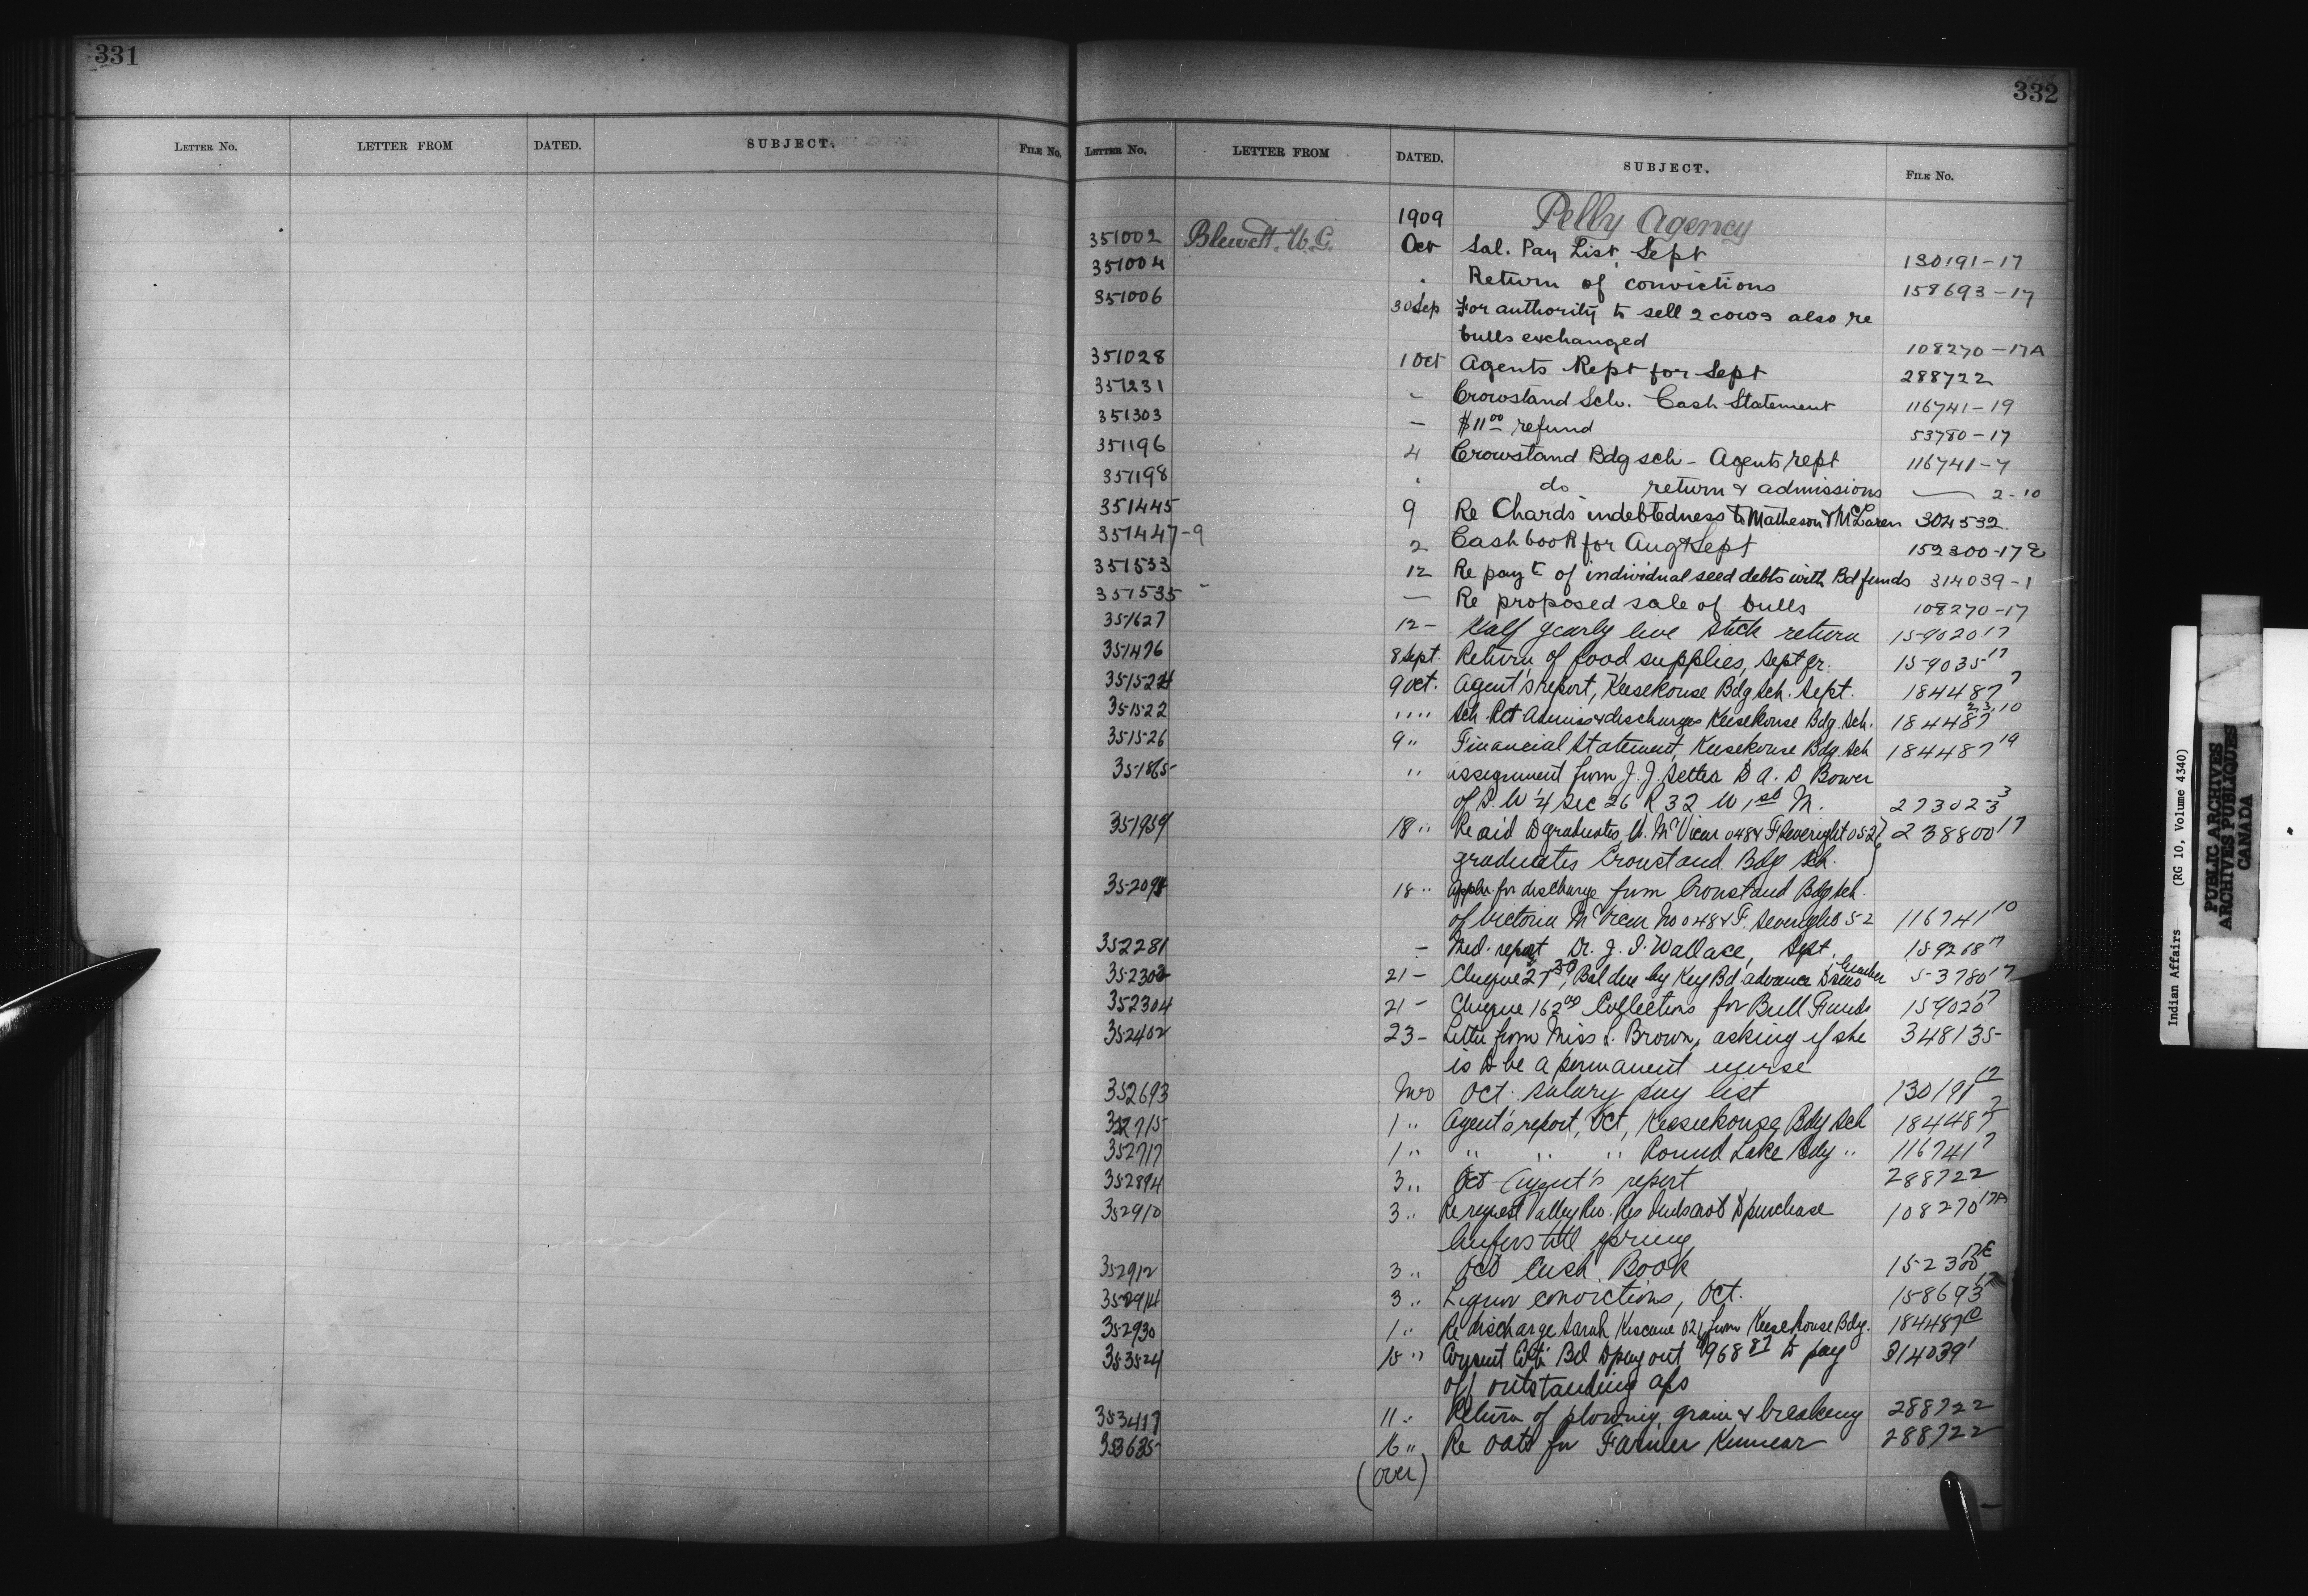 331
LETTER NO. LETTER FROM DATED. SUBJECT. FILE NO.
332
LETTER NO. LETTER FROM DATED. SUBJECT. FILE NO.
1909 Pelly Agency
351002 Blewett. W. G. Oct Sal. Pay List, Sept 130191-17
351004 Return of convictions 158693-17
351006 30 Sep For authority to sell 2 cows also re
bulls exchanged 108270-17A
351028 1 Oct Agents Rept for Sept 288722
351231 - Crowstand Sch. Cash Statement 116741-19
351303 - $11 00 refund 53780-17
351196 4 Crowstand Bdg sch - Agents rept 116741-7
351198 do return & admissions 2-10
351445 9 Re Chards indebtedness to Matheson & McLaren 304532
351447-9 2 Cash book for Aug & Sept 152300-17E
351533 12 Re payt of individual seed debts with Bd funds 314039-1
351535 - Re proposed sale of bulls 108270-17
351627 12- Half yearly live stock return 159020 17
351476 8 Sept. Return of food supplies, Sept qr. 159035 17
351524 9 Oct. Agent's report, Keesekouse Bdg Sch. Sept. 184487 7
351522 " " Sch. Ret Admiss & discharges Keesekouse Bdg. Sch. 184487 2,3,10
351526 9 " Financial Statement, Keesekouse Bdg Sch 184487 19
351865 " assignment from J. J. Setter to A. D Bower
of S. W 1/4 Sec 26 R 32 W 1st M. 273023 3
351959 18 " Re aid to graduates V. McVicar 048 & F Severight 052 238800 17
graduates Crowstand Bdg Sch.
352094 18 " Appln for discharge from Crowstand Bdg Sch.
of Victoria McVicar No 048 & F. Severight 052 116741 10
352281 - Med. report Dr. J. I. Wallace, Sept. 159268 17
352302 21- Cheque Bal due by Key Bd advance 53780 17
352304 21- Cheque 162 00 Collections for Bull Funds 159020 17
352402 23- Letter from Miss S. Brown, asking if she 348135
is to be a permanent nurse
352693 Nov Oct. salary pay list 130191 17
352715 1 " Agent's report, Oct, Keeseekouse Bdg Sch 184487 7
352717 1 " " " " Round Lake Bdg " 116741 7
352894 3 " Oct Agent's report 288722
352910 3 " Re request Valley Riv. Res Inds not to purchase 108270 17A
heifers till spring
352912 3 " Oct Cash Book 152300 17E
352914 3 " Liquor convictions, Oct. 158693 17
352930 1 " Re discharge Sarah 021 from Keesekouse Bdg. 184487 10
353524 15 " Consent Coté Bd to pay out 968 87 to pay 314039 1
off outstanding a/cs
353417 11 " Return of plowing, grain & breaking 288722
353635 16 " Re oats for Farmer Kennear 288722
(over)
Indian Affairs (RG 10, Volume 4340)
PUBLIC ARCHIVES
ARCHIVES PUBLIQUES
CANADA